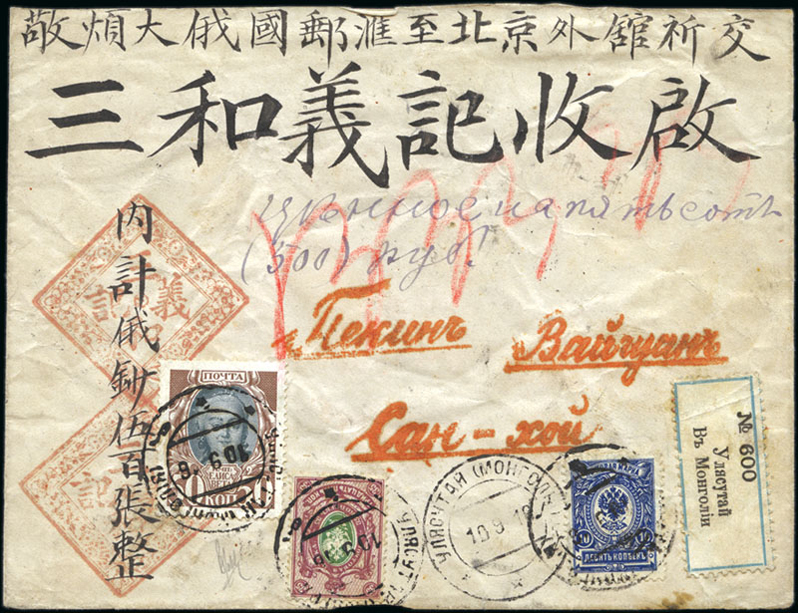 敬煩大俄國郵滙至北京外舘祈交
三和義記收啟
内計俄鈔伍百張整
Цѣнное на пятьсотъ
(500) руб.
Пекинъ Вайгуанъ
Сан-хой
№ 600
Улясутай
Въ Монголіи
ПОЧТА
КОП
УЛЯСУТАЙ (МОНГОЛ
10 9 1
10 9 16
ДЕСЯТЬ КОПѢЕКЪ
10 10
義
記
記